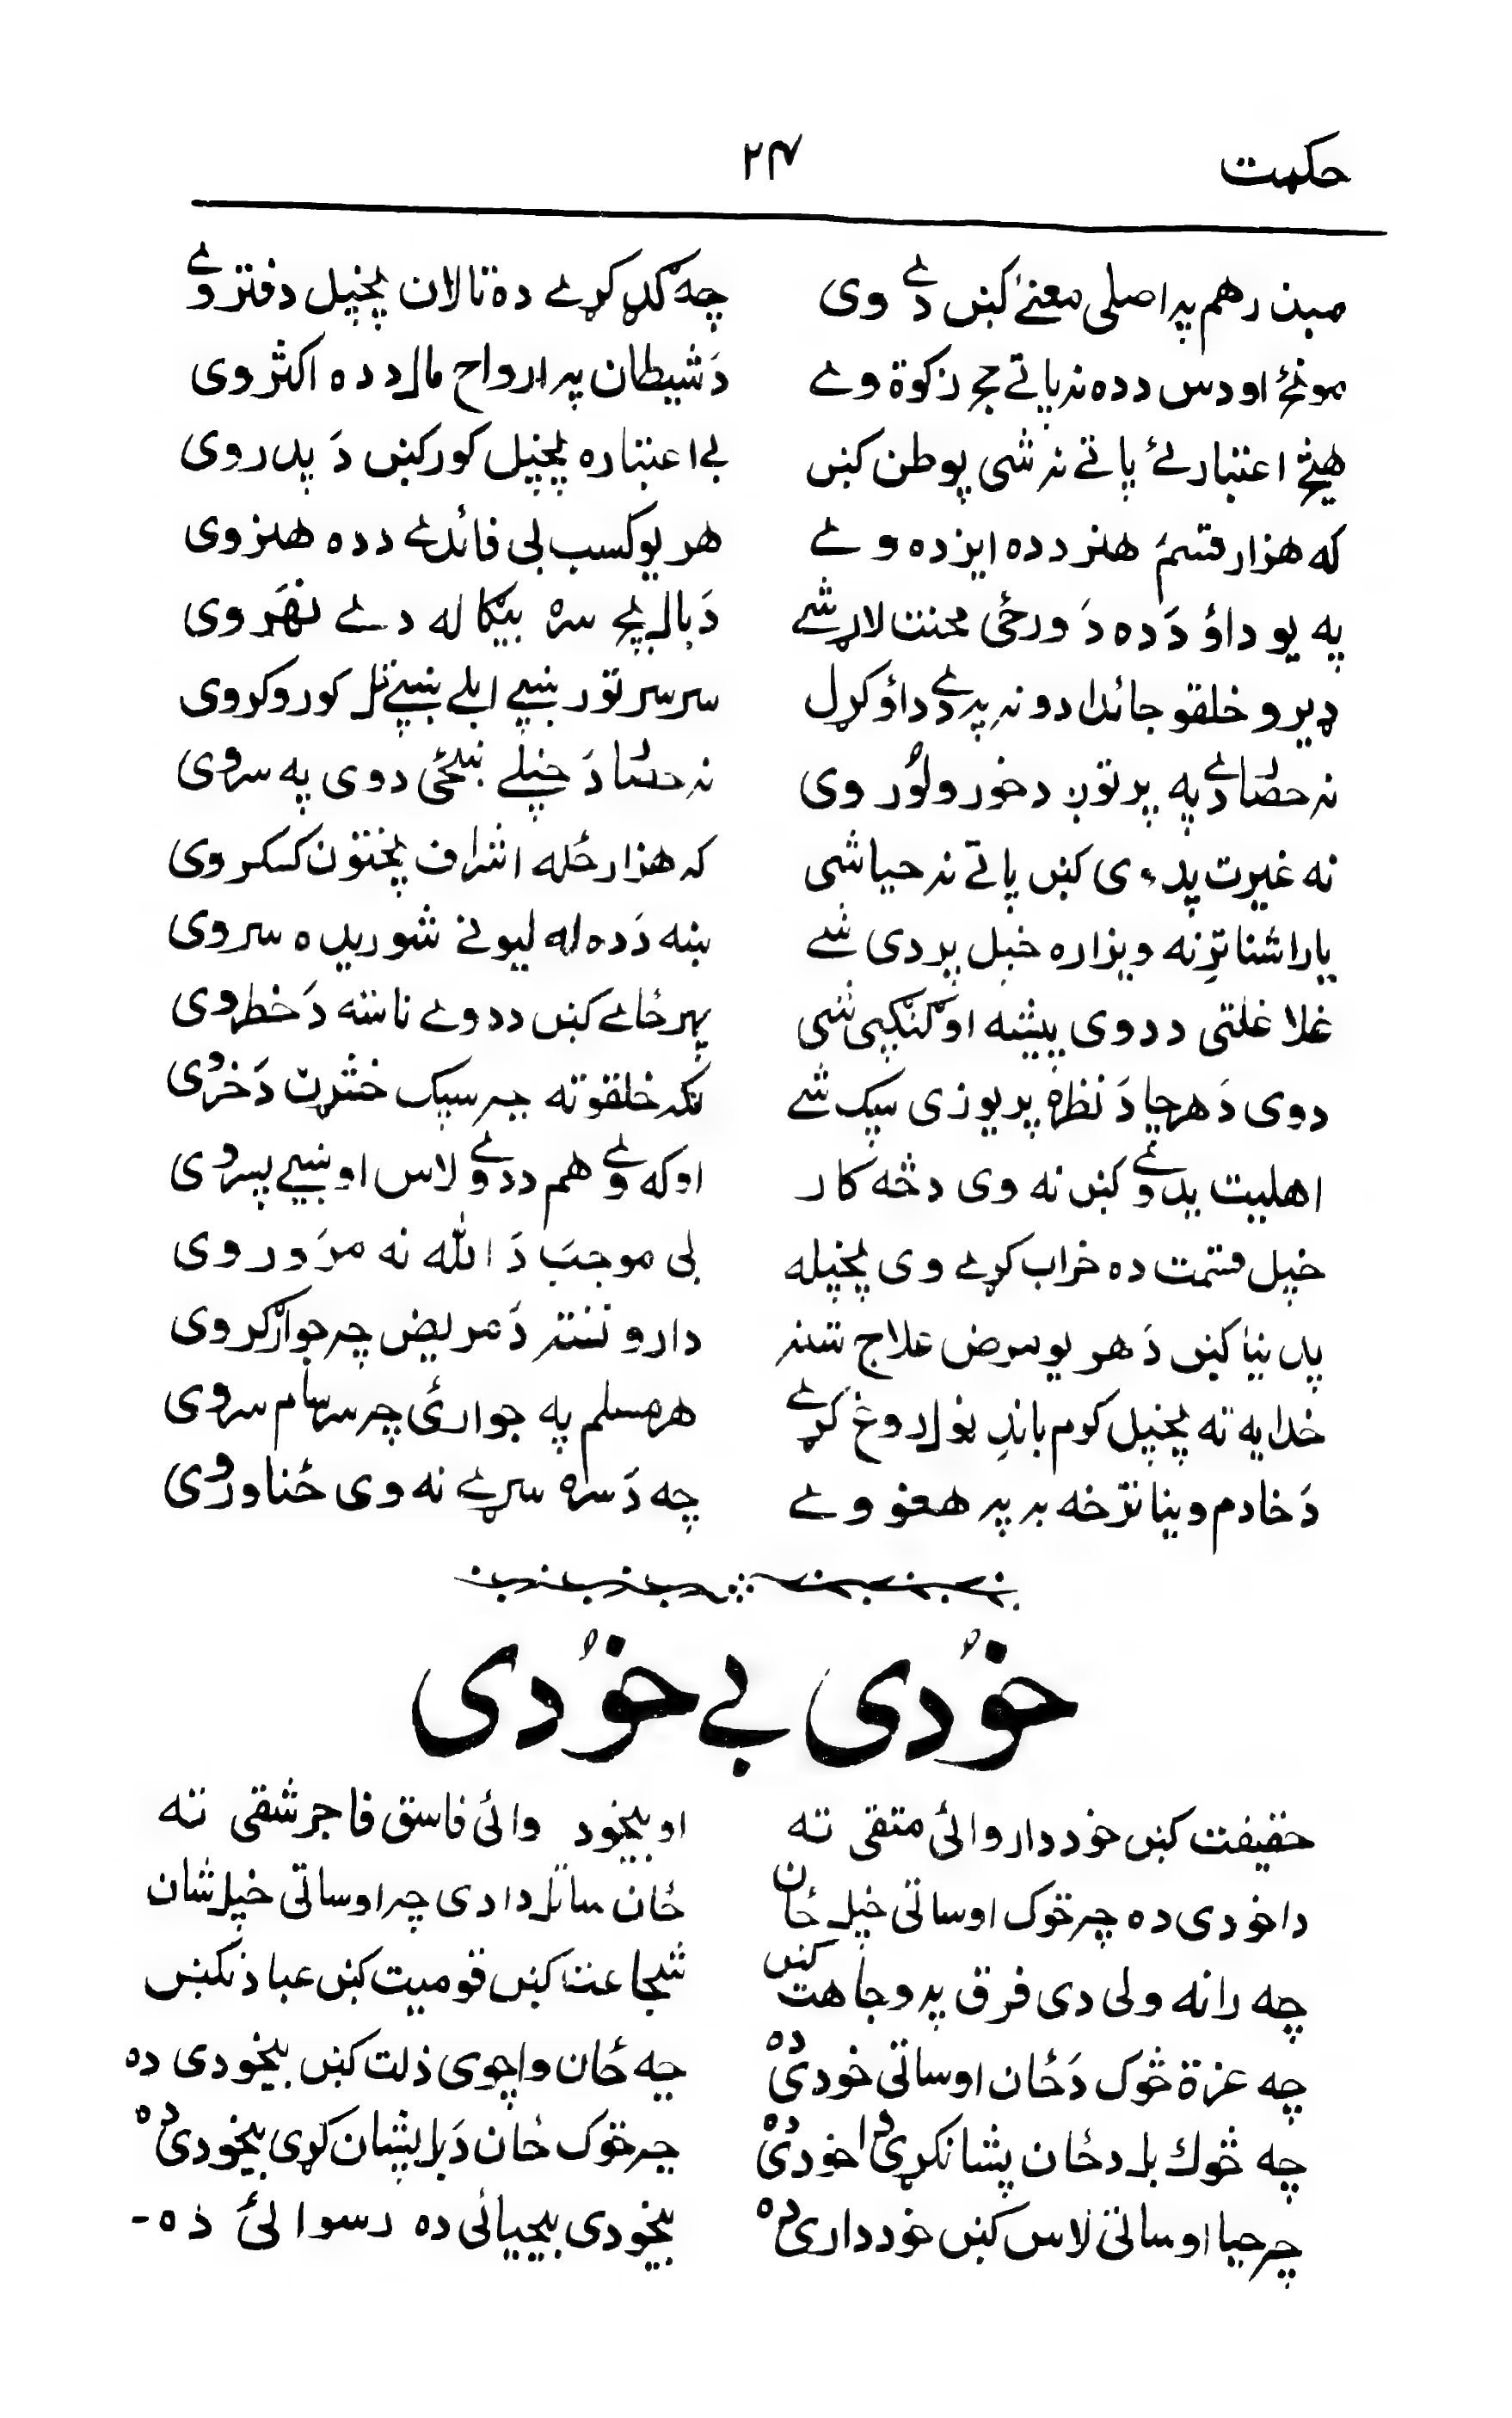 حکمت ۲۴
مبذر هم په اصلی معنےٰ کښ دے وی چه ګډ کړے ده تالان پخپل دفتر وے
مونځ اودس د ده نه پاتے حج زکوة وے دَ شیطان په ارواح مال د ده اکثر وی
هیڅ اعتبار ئے پاتے نه شی پو وطن کښ بے اعتباره پخپل کور کښ دَ پدر وی
که هزار قسم هنر د ده ایزده وے هر یو کسب بی فائدے د ده هنر وی
په یو داؤ دَ ده دَ ورځی محنت لاړ شے دَ بال بچے سره بیګا له دے نهَر وی
ډیرو خلقو جائدادونه پرے داؤ کړل سر سر تور ښپے ابلے ښپے تل کور و کر وی
نه حصّا دے په پرتوګ د خور و لُور وی نه حصّا دَ خپلے ښځی دوی په سر وی
نه غیرت پدوی کښ پاتے نه حیا شی که هزار ځله اشراف پختون ککر وی
یار اشنا ترنه ویزاره خپل پردی شے ښه دَ ده له لیونے شوریده سر وی
غلا غلتی د دوی پیشه او ګنګپی شی پهر ځائے کښ د دوے ناسته دَ خطر وی
دوی دَ هر چا دَ نظره پریوزی سپک شے لکه خلقو ته چه سپک خټرت دَ خر وی
اهلیت پدوے کښ نه وی د څه کار او که وے هم د دوے لاس او ښپے پسر وی
خپل قسمت ده خراب کړے وی پخپله بی موجبَ دَ الله نه مرَور وی
پدنیا کښ دَ هر یو مرض علاج شته دارو نشته دَ مریض چه جواړګر وی
خدایه ته پخپل کوم باندِ نول دروغ کړے هر مسلم په جوارئ چه سرسام سر وی
دَ خادم وینا ترڅه به په هغو وے چه دَ سره سړے نه وی ځناور وی
خوُدی بے خوُدی
حقیقت کښ خوددار وائی متقی ته او بیخود وائی فاسق فاجر شقی ته
دا خودی ده چه څوک اوساتی خپل ځان ځان ساتل دا دی چه اوساتی خپل شان
چه رانه ولی دی فرق په وجاهت کښ شجاعت کښ قومیت کښ عبادت کښ
چه عزة څوک دَ ځان اوساتی خودی ده چه ځان واچوی ذلت کښ بیخودی ده
چه څوك بل د ځان پشان کړی دا خودی ده چه څوک ځان دَ بل پشان کړی بیخودی ده
چه حیا اوساتی لاس کښ خودداری ده بیخودی بیحیائی ده رسوائی ده -